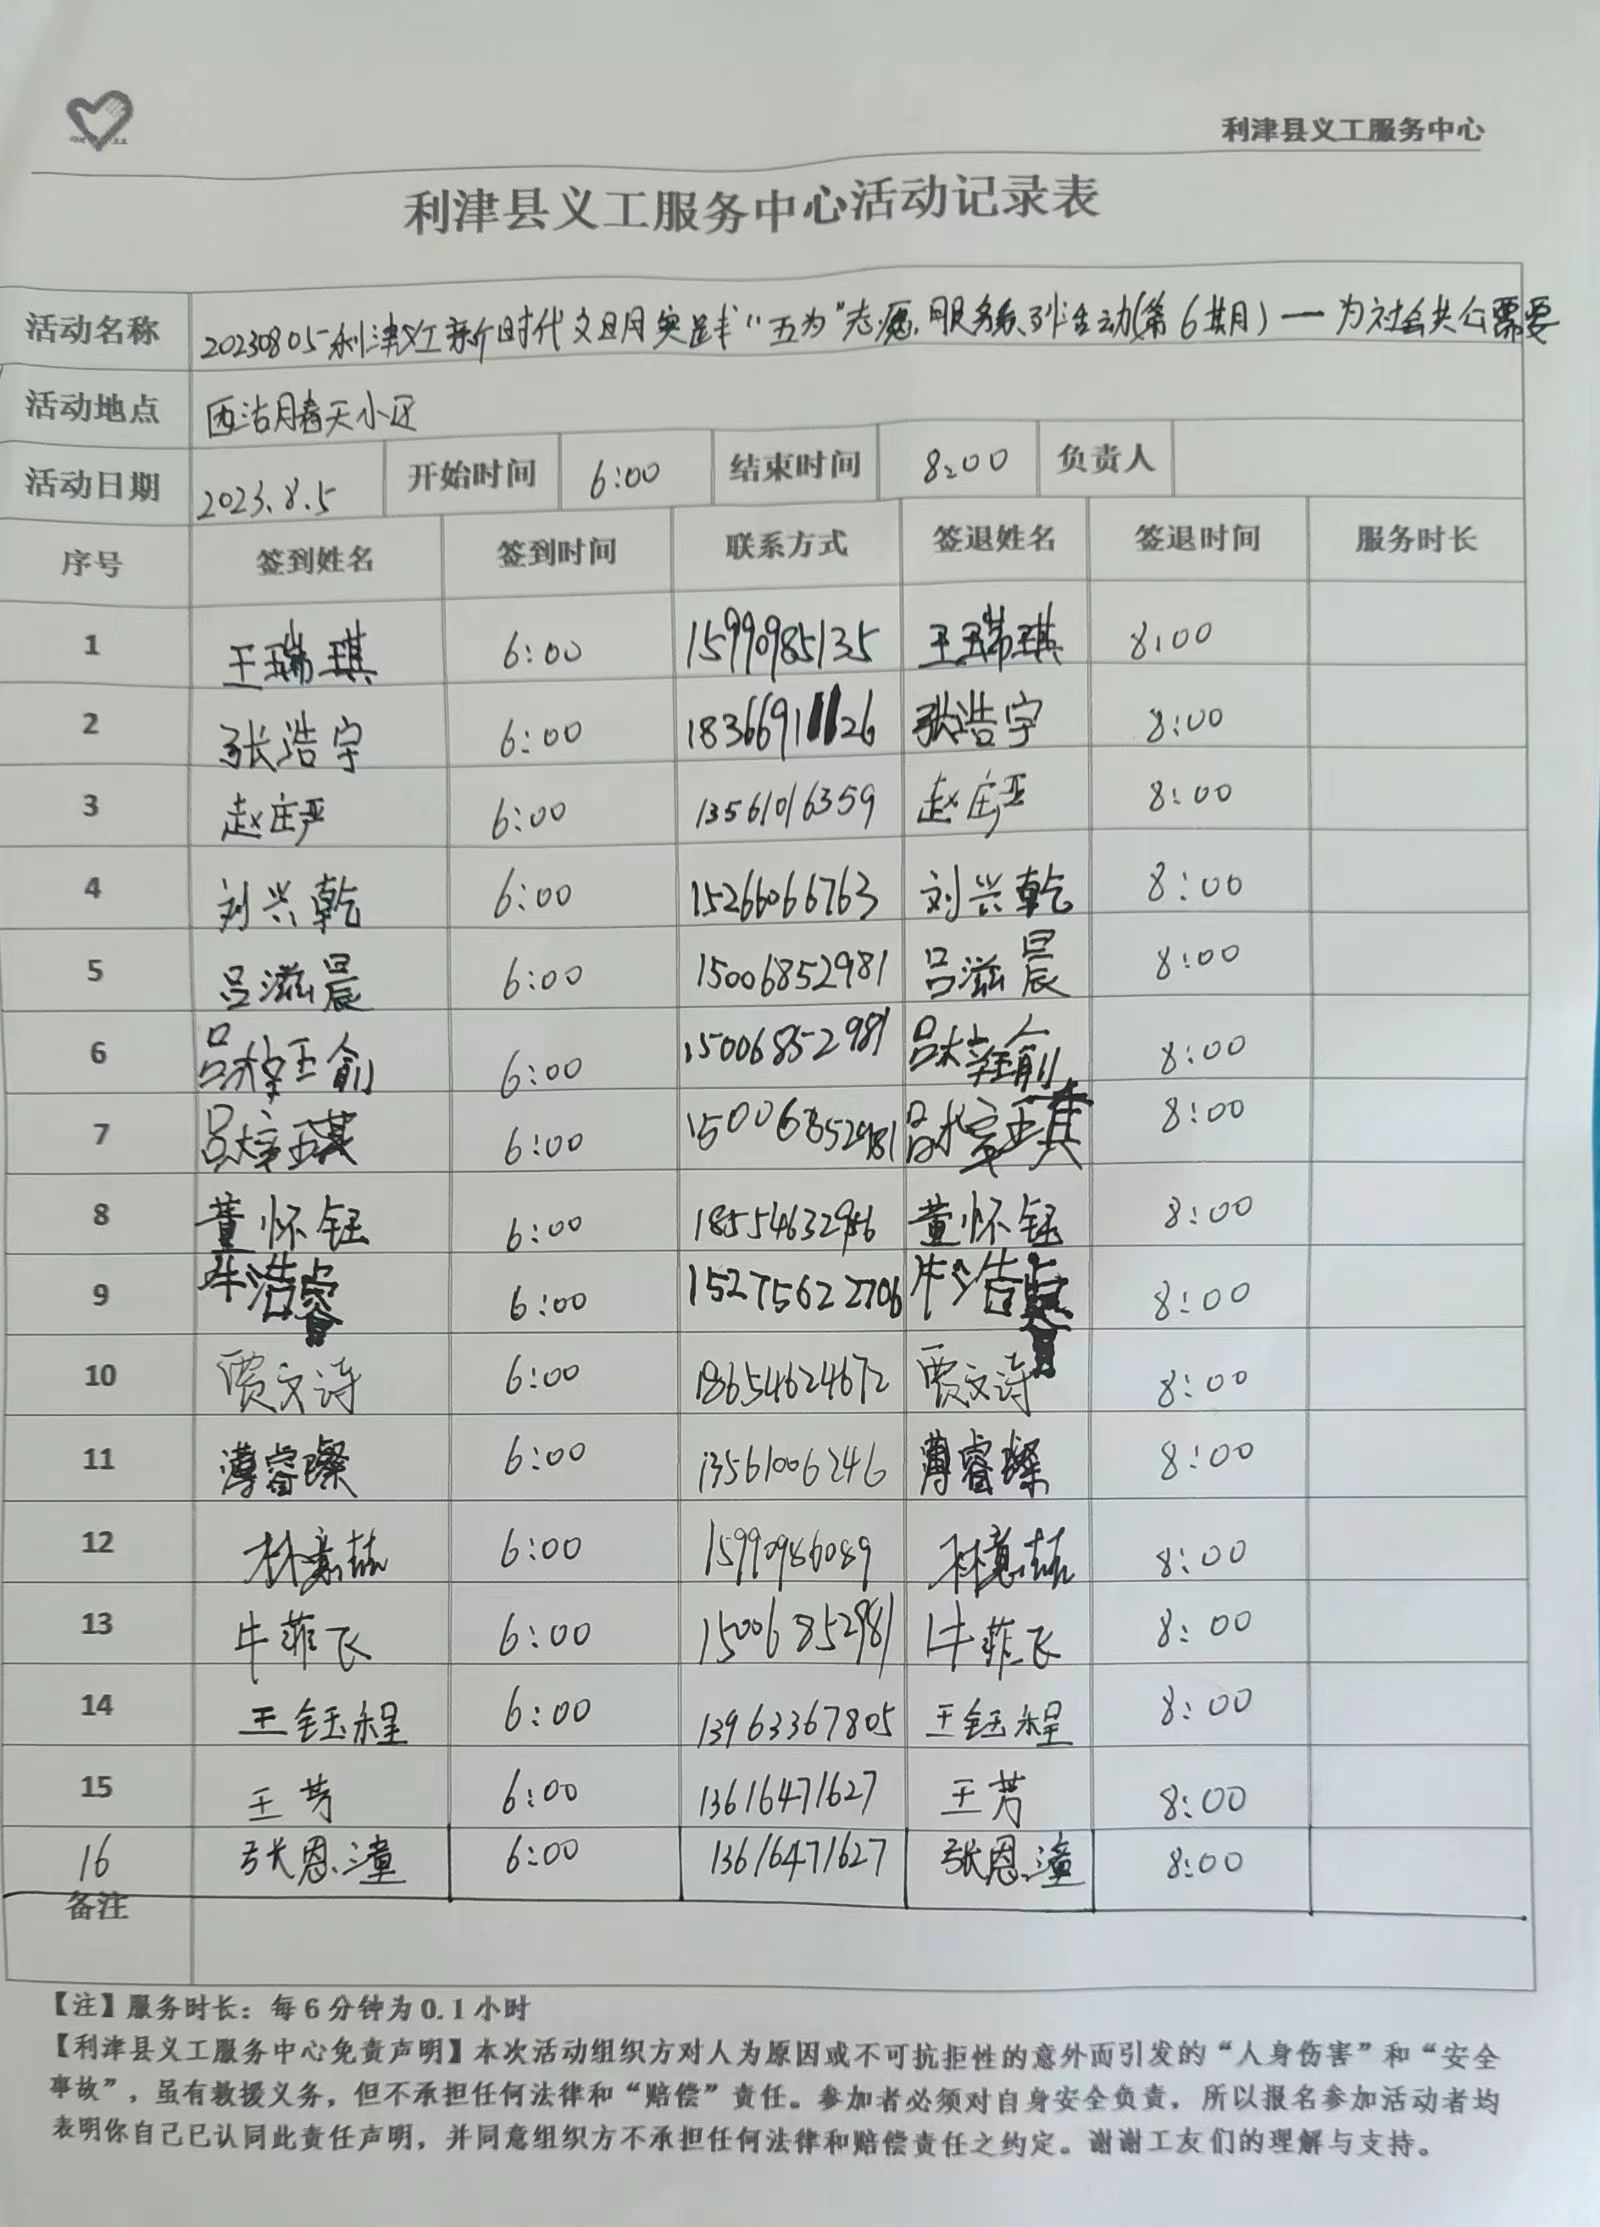 利津县义工服务中心
利津县义工服务中心活动记录表
活动名称 20230805-利津义工新时代文明实践"五为"志愿服务系列活动(第6期)一为社会共公需要
活动地点 西沽月春天小区
活动日期 2023.8.5 开始时间 6:00 结束时间 8:00 负责人
序号 签到姓名 签到时间 联系方式 签退姓名 签退时间 服务时长
1 王瑞琪 6:00 15990985135 王瑞琪 8:00
2 张浩宇 6:00 18366911126 张浩宇 8:00
3 赵庄严 6:00 13561016359 赵庄严 8:00
4 刘兴乾 6:00 15266066763 刘兴乾 8:00
5 吕滋晨 6:00 15006852981 吕滋晨 8:00
6 吕梓瑜 6:00 15006852981 吕梓瑜 8:00
7 吕梓琪 6:00 15006852981 吕梓琪 8:00
8 董怀钰 6:00 18554632956 董怀钰 8:00
9 牛浩睿 6:00 15275622706 牛浩睿 8:00
10 贾文诗 6:00 18654624672 贾文诗 8:00
11 薄睿璨 6:00 13561006246 薄睿璨 8:00
12 6:00 15990986089 8:00
13 牛菲飞 6:00 15006852981 牛菲飞 8:00
14 王钰程 6:00 13963367805 王钰程 8:00
15 王芳 6:00 13616471627 王芳 8:00
16 张恩潼 6:00 13616471627 张恩潼 8:00
备注
【注】服务时长：每6分钟为0.1小时
【利津县义工服务中心免责声明】本次活动组织方对人为原因或不可抗拒性的意外而引发的“人身伤害”和“安全
事故”，虽有救援义务，但不承担任何法律和“赔偿”责任。参加者必须对自身安全负责，所以报名参加活动者均
表明你自己已认同此责任声明，并同意组织方不承担任何法律和赔偿责任之约定。谢谢工友们的理解与支持。